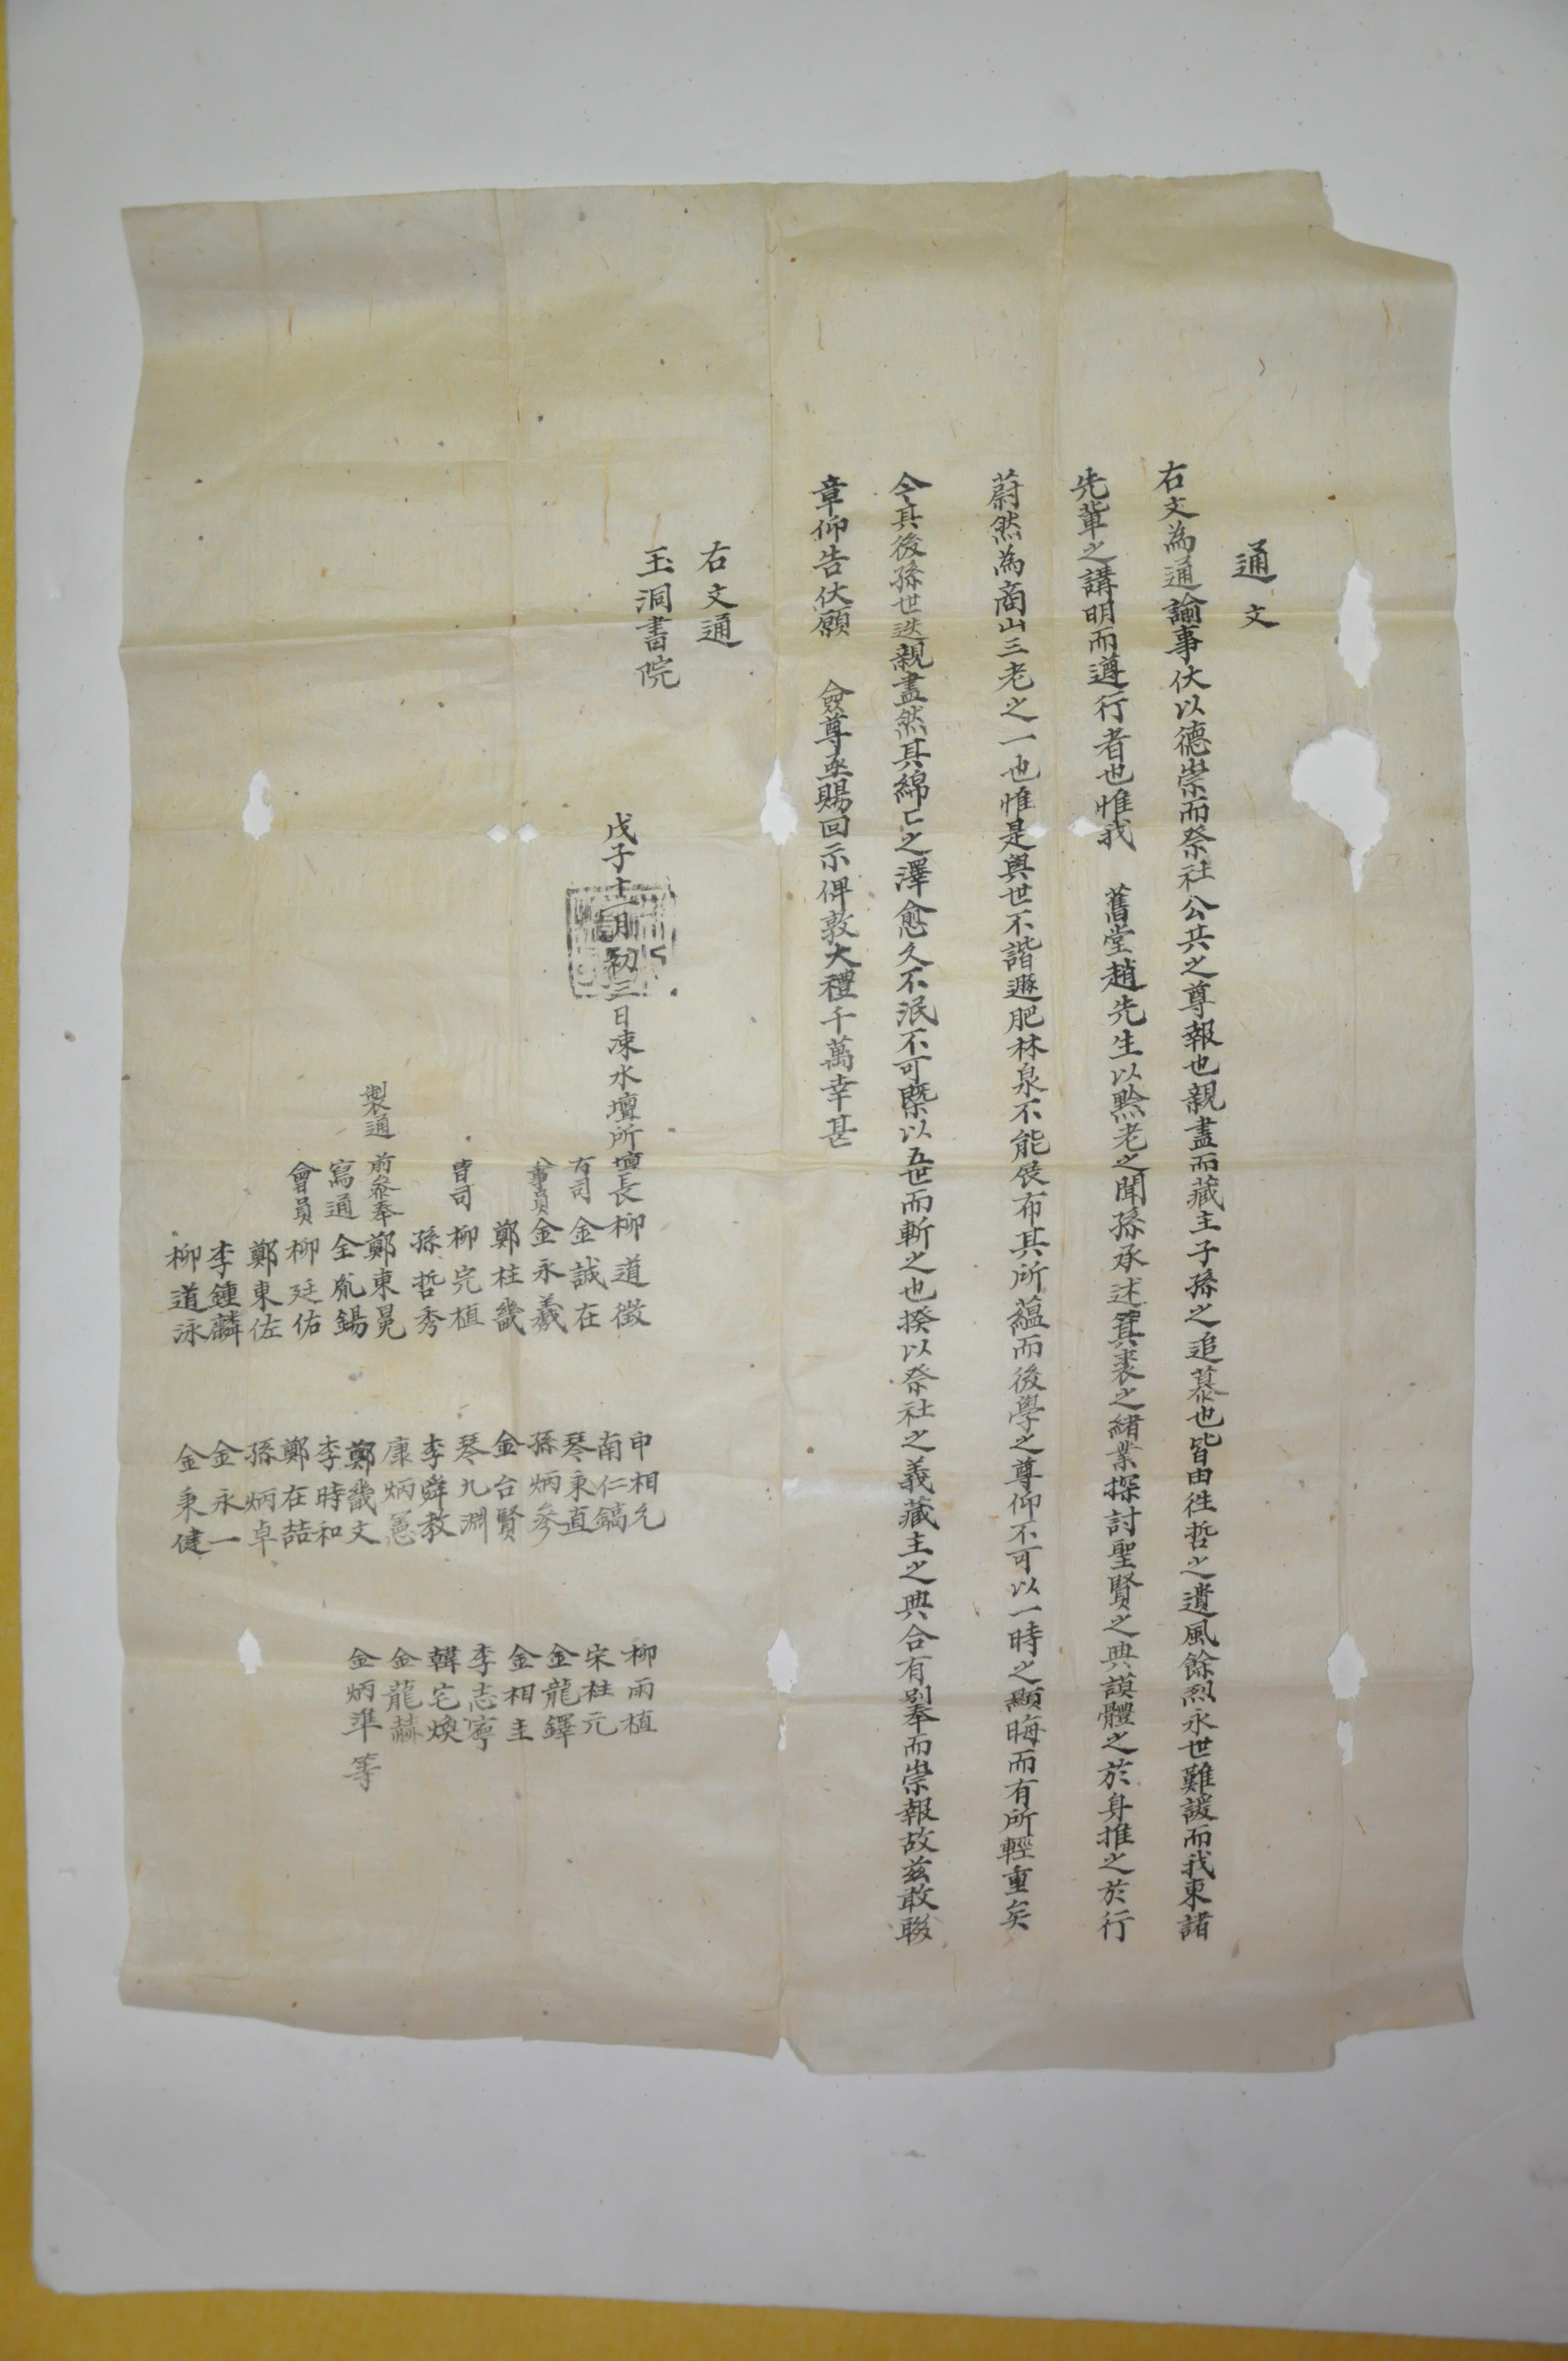 通文
右文為通諭事伏以德崇而祭社公共之尊報也親盡而藏主子孫之追慕也皆由往哲之遺風餘烈永世難諼而我東諸
先輩之講明而遵行者也惟我 舊堂趙先生以黔老之聞孫承述箕裘之緖業探討聖賢之典謨體之於身推之於行
蔚然為商山三老之一也惟是與世不諧遯肥林泉不能展布其所蘊而後學之尊仰不可以一時之顯晦而有所輕重矣
今其後孫世迭親盡然其綿亡之澤愈久不泯不可槩以五世而斬之也揆以祭社之義藏主之典合有別奉而崇報故玆敢聯
章仰告伏願 僉尊亟賜回示俾敦大禮千萬幸甚
右文通
玉洞書院
戊子十二月初三日凍水壇所壇長柳道徵 申相允 柳雨植
有司金誠在 南仁鎬 宋柱元
公事員金永羲 琴秉直 金龍鐸
鄭柱畿 孫炳參 金相圭
曺司柳完植 金台賢 李志寧
孫哲秀 琴九淵 韓宅煥
製通前參奉鄭東冕 李舜教 金龍赫
寫通全胤錫 康炳憲 金炳準等
會員柳廷佑 鄭畿文
鄭東佐 李時和
李鍾麟 鄭在喆
柳道泳 孫炳卓
金永一
金秉健